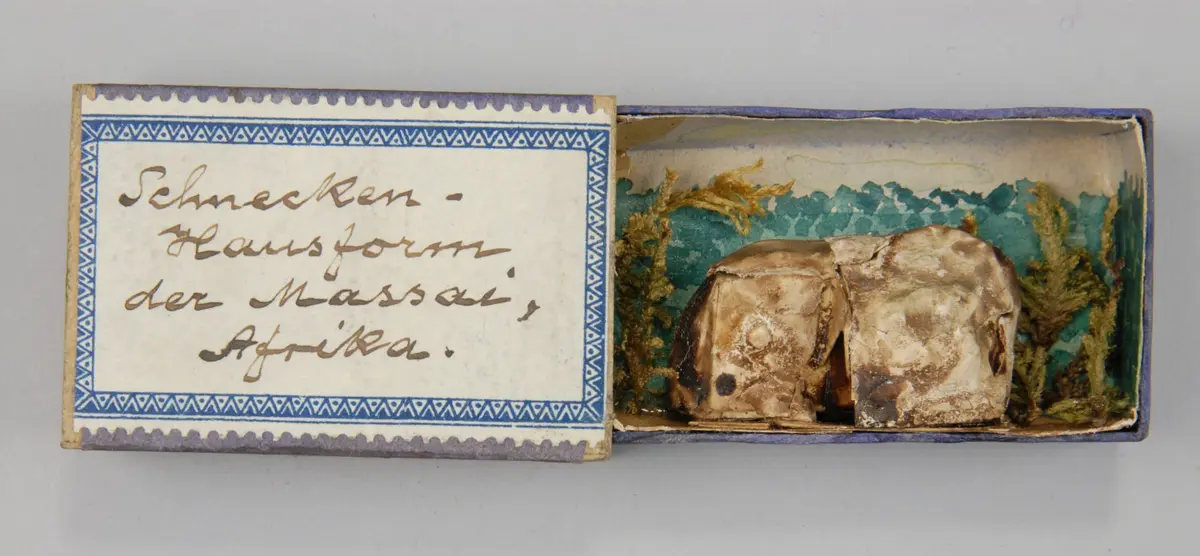 Schnecken-
Hausform
der Massai,
Afrika.